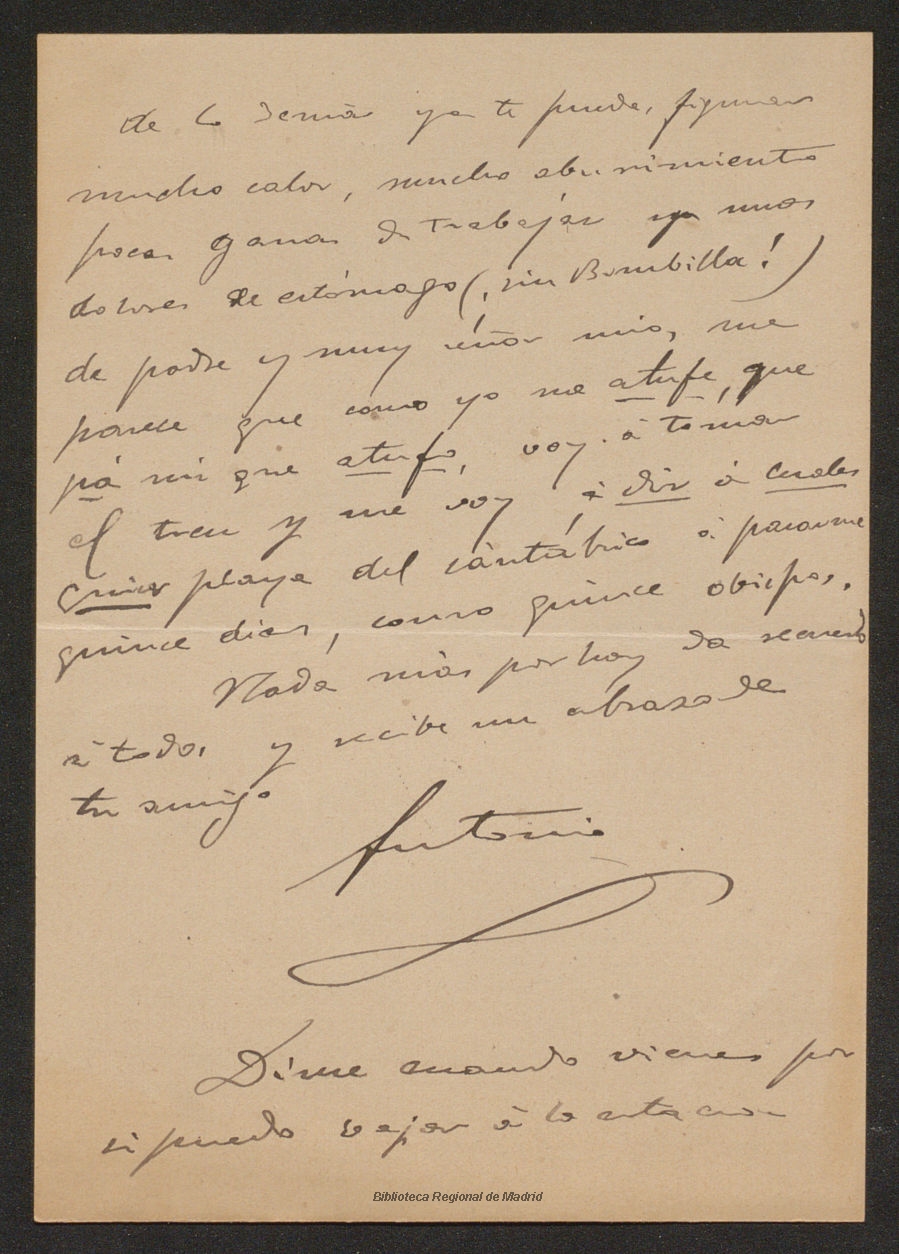 de lo demás ya te puedes figurar
mucho calor, mucho aburrimiento
pocas ganas de trabajar y unos
dolores de estómago (¡sin Bombilla!)
de padre y muy señor mío, me
parece que como yo me atufe, que
pá mi que atufo, voy á tomar
el tren y me voy á dir á cuales
quier playa del cantábrico á pasarme
quince dias, como quince obispos.
Nada más por hoy da recuerdos
á todos y recibe un abrazo de
tu amigo
Antonio
Dime cuando vienes por
si puedo bajar á la estacion
Biblioteca Regional de Madrid